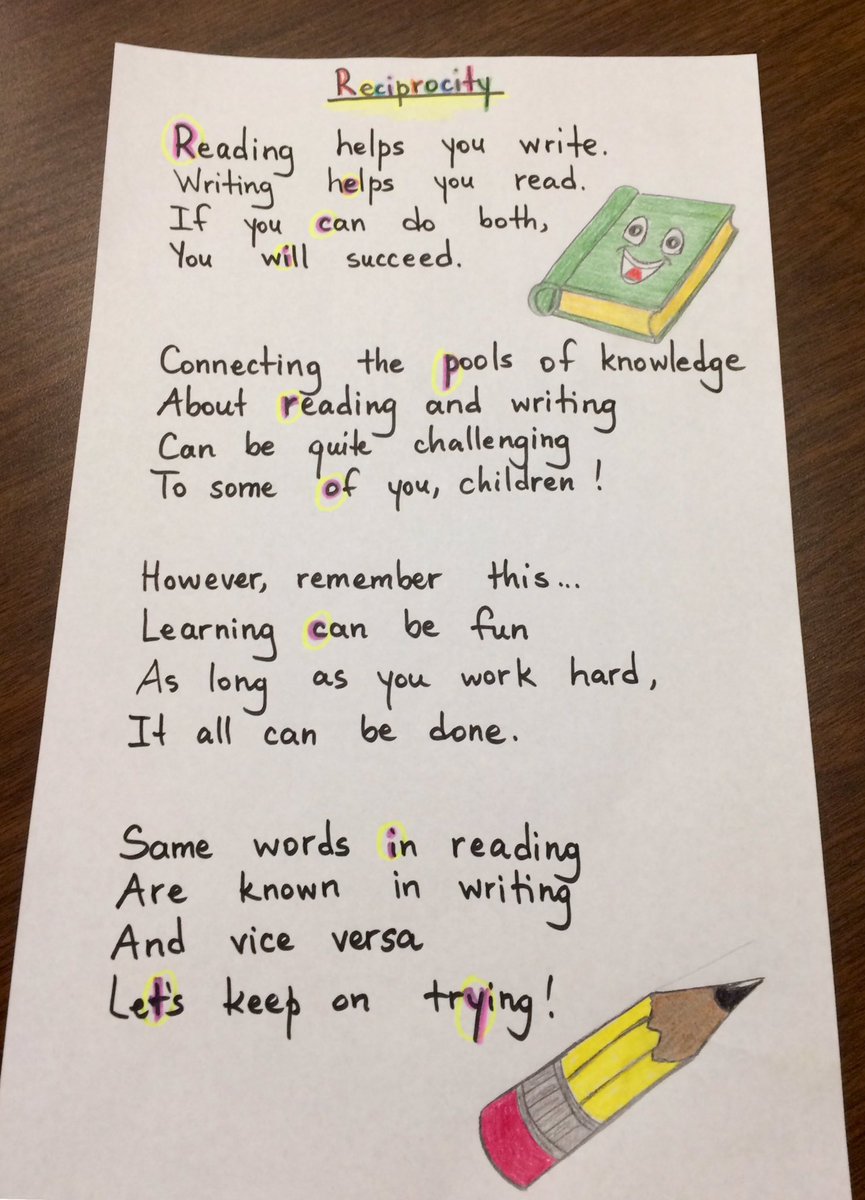 Reciprocity
Reading helps you write.
Writing helps you read.
If you can do both,
You will succeed.
Connecting the pools of knowledge
About reading and writing
Can be quite challenging
To some of you, children!
However, remember this...
Learning can be fun
As long as you work hard,
It all can be done.
Same words in reading
Are known in writing
And vice versa
Let's keep on trying!